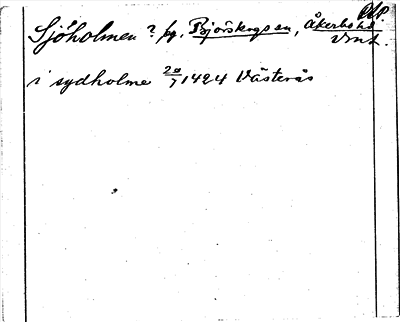 Sjöholmen? fg. Björskogs sn, Åkerbo hd
Vml.
i sydholme 20/7 1424 Västerås